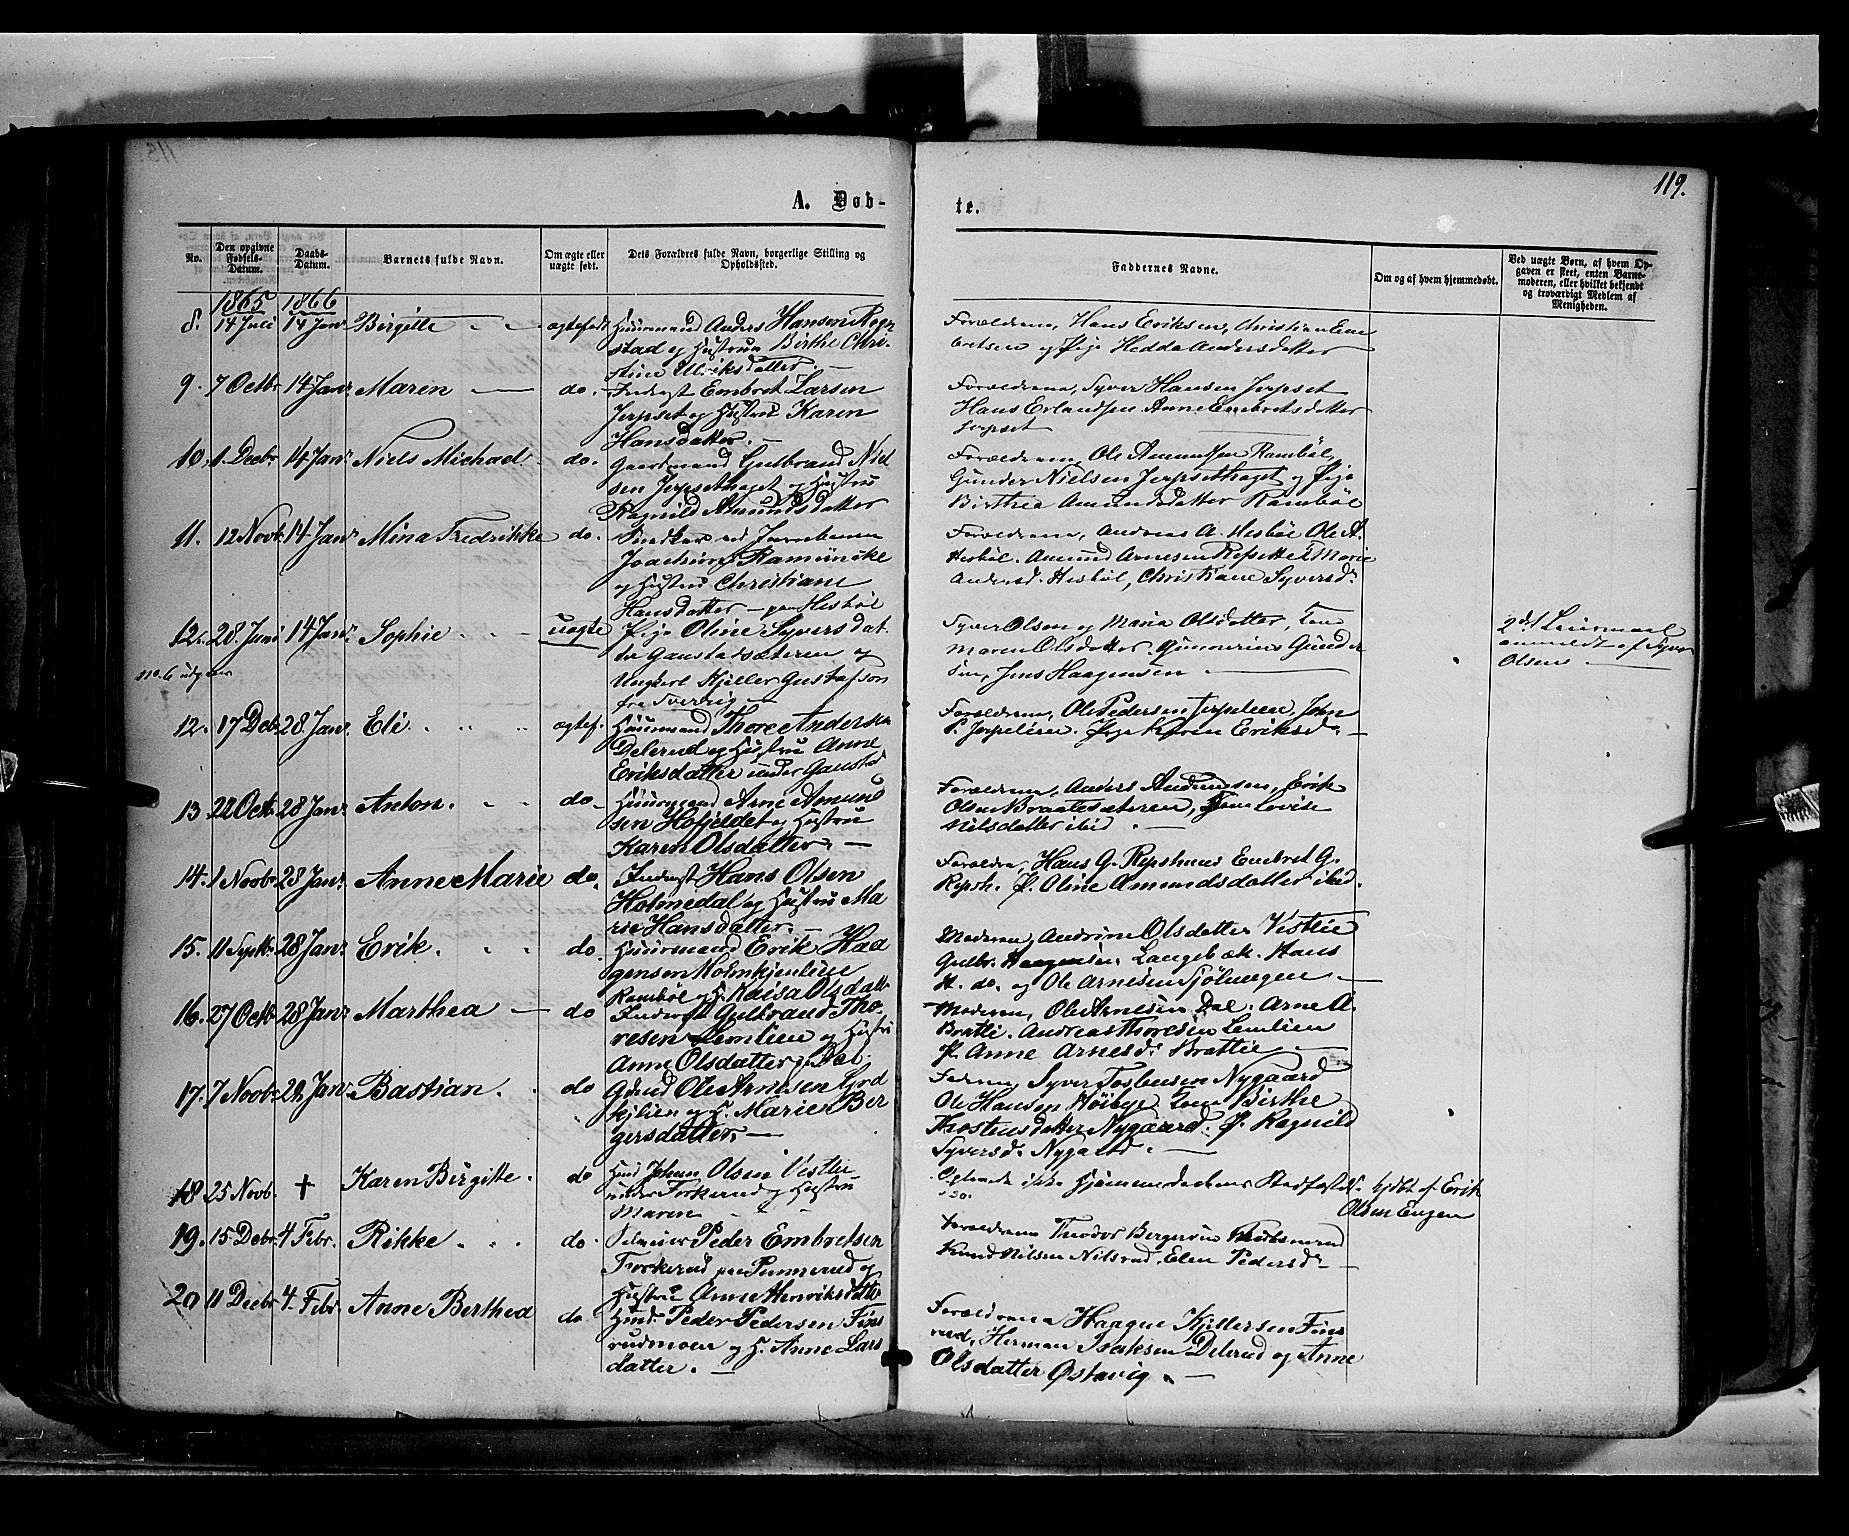 119.
A. Døb-
te.
No.
Den opgivne Fødsels-Datum.
Daabs-Datum.
Barnets fulde Navn.
Om ægte eller uægte født.
Dets Forældres fulde Navn, borgerlige Stilling og Opholdssted.
Faddernes Navne.
Om og af hvem hjemmedøbt.
Ved uægte Børn, af hvem Opgaven er skeet, enten Barnemoderen, eller hvilket bekjendt og troværdigt Medlem af Menigheden.
1865 1866
8. 14 Juli 14 Janr Birgitte ægtefødt Huusmand Anders Hansen
stad og Hustru Birthe Chri-
stine Ulriksdatter
Forældrene, Hans Eriksen, Christian Em
bretsen og Pige Hedda Andersdatter
9. 7 Octbr 14 Janr Maren do. Inderst Embret Larsen
Jerpset og Hustru Karen
Hansdatter.
Forældrene, Syver Hansen Jerpset
Hans Erlandsen Anne Embretsdatter
Jerpset
10. 1 Decbr 14 Janr Niels Michael do. Gaardmand Gulbrand Niel
sen Jerpsethaget og Hustru
Ragnild Amundsdatter
Forældrene, Ole Amundsen Rambøl,
Gunder Nielsen Jerpsethaget og Pige
Birthea Amundsdatter Rambøl
11. 12 Novb. 14 Janr Mina Fredrikke do. ved Jernbanen
Joachim Ramüncke
og Hustru Christiane
Hansdatter - paa Hesbøl
Forældrene, Andreas A. Hesbøl Ole A.
Hesbøl. Amund Arnesen Marie
Andersd. Hesbøl, Christiane Syversdr
12. 28 Juni 14 Janr Sophie uægte Pige Oline Syversdat
ter Gaustadsæteren og
Ungkarl Kjeller Gustafson
fra Sverrig
Syver Olsen og Maria Olsdatter,
Maren Olsdatter. Gunnerius Gunder
sen, Jens Haagensen
2det Leiermaal
anmeldt af Syver
Olsen
no. 6 udgaar
12. 17 Deb. 28 Janr. Eli ægtef. Huusmand Thore Andersen
Delerud og Hustru Anne
Eriksdatter under Gaustad
Forældrene, Ole Pedersen Jerpelien, John
P. Jerpelien. Pige Karen Eriksd.
13 22 Octb. 28 Janr. Anton. do. Huusmand Arne Amund
sen Hofjeldet og Hustru
Karen Olsdatter.
Forældrene, Anders Amundsen, Erik
Olsen Braatesæteren, Lovise
Nilsdatter ibid
14. 1 Novb. 28 Janr. Anne Marie do. Inderst Hans Olsen
Holmedal og Hustru Ma
rie Hansdatter.
Forældre, Hans G. Embret G.
P. Oline Amundsdatter ibid.
15. 11 Septb. 28 Janr. Erik. do. Huusmand Erik Haa
gensen Holmkjenliene
Rambøl og H. Kaisa Olsdatt.
Moderen, Andrine Olsdatter Vestlie
Gulbr. Haagensen Langebæk. Hans
H. do. og Ole Arnesen
16. 27 Octb. 28 Janr. Marthea do Inderst Gulbrand Tho
resen Lemlien og Hustru
Anne Olsdatter Dal.
Moderen, Ole Arnesen Dal. Arne A.
Brattli. Andreas Thoresen Lemlien
P. Anne Arnesdr Brattlie
17. 7 Novb. 29 Janr Bastian. do Ole Arnesen
kjilien og H. Marie Ber
gersdatter.
Faderen, Syver Nygaard
Ole Hansen Høibye. Birthe
Thostensdatter Nygaard. P. Ragnild
Syversd. Nygaard.
18 25 Novb. + Karen Birgitte. do Johan Olsen Vestli
under Torkerud og Hustru
Maren
Oplevede ikke Hjemmedaabens Stadfæstelse
hjdbt af Erik
Olsen Engen
19. 15 Decbr. 4 Febr. Rikke do. Peder Embretsen
Torkerud paa og
Hustru Anne Henriksdatter
Forældrene Theodor Bergersen
Knud Nilsen Nilsrud. Elen Pedersdr
20 11 Decbr 4. Febr Anne Berthea do. Peder Pedersen Fins
rudmoen og H. Anne Lars
datter.
Forældrene Haagne Kjellersen Fins
rud, Herman Isaksen Delerud og Anne
Olsdatter Østavig.